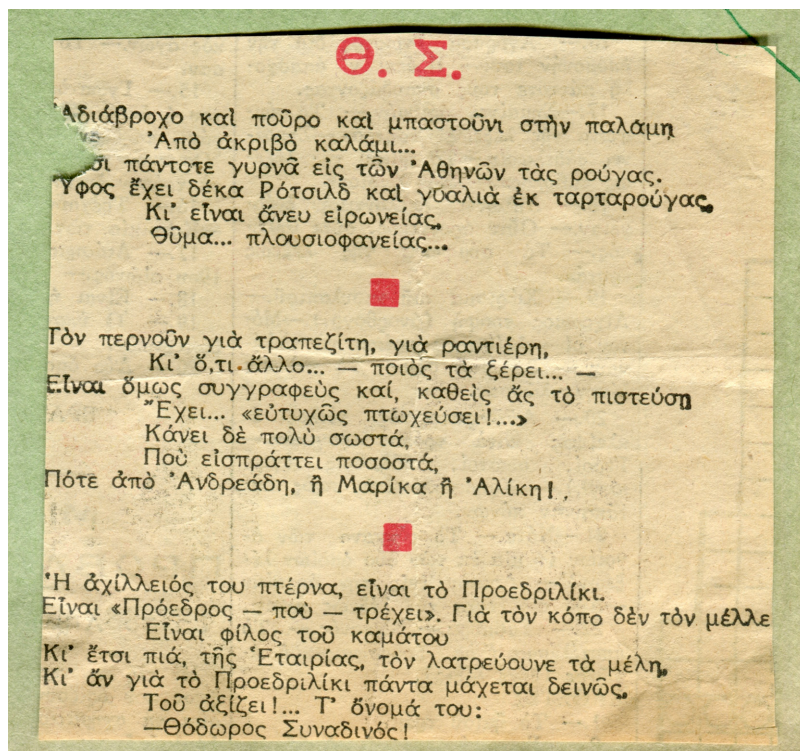 Θ. Σ.
Ἀδιάβροχο καὶ ποῦρο καὶ μπαστοῦνι στὴν παλάμη
Ἀπὸ ἀκριβὸ καλάμι...
πάντοτε γυρνᾶ εἰς τῶν Ἀθηνῶν τὰς ρούγας.
Ὕφος ἔχει δέκα Ρότσιλδ καὶ γυαλιὰ ἐκ ταρταρούγας,
Κι' εἶναι ἄνευ εἰρωνείας,
Θῦμα... πλουσιοφανείας...
Τὸν περνοῦν γιὰ τραπεζίτη, γιὰ ραντιέρη,
Κι' ὅ,τι ἄλλο... — ποιὸς τὰ ξέρει... —
Εἶναι ὅμως συγγραφεὺς καί, καθεὶς ἂς τὸ πιστεύση
Ἔχει... «εὐτυχῶς πτωχεύσει!...»
Κάνει δὲ πολὺ σωστά,
Ποὺ εἰσπράττει ποσοστά,
Πότε ἀπὸ Ἀνδρεάδη, ἢ Μαρίκα ἢ Ἀλίκη!
Ἡ ἀχίλλειός του πτέρνα, εἶναι τὸ Προεδριλίκι.
Εἶναι «Πρόεδρος — ποὺ — τρέχει». Γιὰ τὸν κόπο δὲν τὸν μέλλε
Εἶναι φίλος τοῦ καμάτου
Κι' ἔτσι πιά, τῆς Ἑταιρίας, τὸν λατρεύουνε τὰ μέλη,
Κι' ἂν γιὰ τὸ Προεδριλίκι πάντα μάχεται δεινῶς,
Τοῦ ἀξίζει!... Τ' ὄνομά του:
—Θόδωρος Συναδινός!